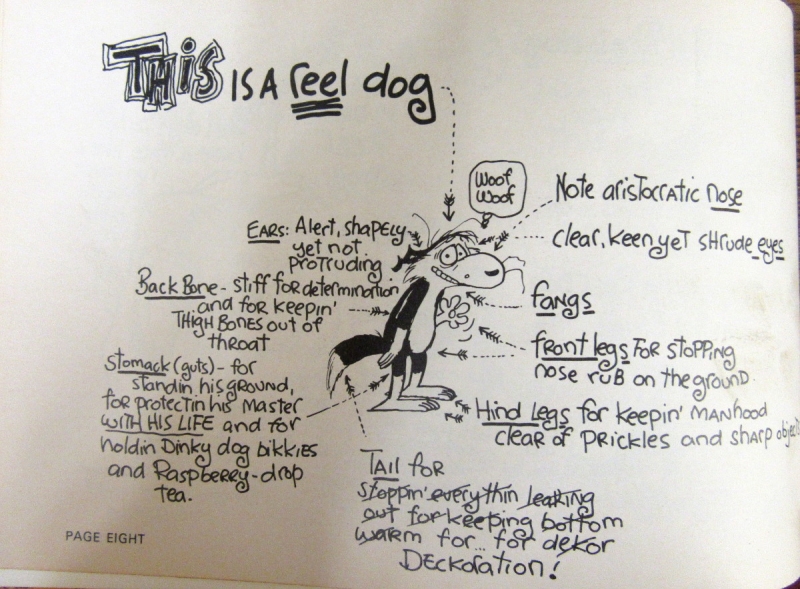 THiS IS A reel dog
Woof
Woof
Note aristocratic nose
clear, keen yet SHrude eyes
EARS: Alert, shapely
yet not
protruding
Back Bone - stiff for determination
and for keepin'
THIGH BONES out of
throat
fangs
front legs FOR STOPPING
nose rub on the ground.
Stomack (guts) - for
standin his ground,
for protectin his Master
WITH HIS LIFE and for
holdin Dinky dog bikkies
and Raspberry-drop
tea.
Hind Legs for keepin' MANhood
clear of PRickles and sharp objects
TAil for
stoppin' everythin leaking
out for keeping bottom
warm for... for dekor
DECkoration!
PAGE EIGHT